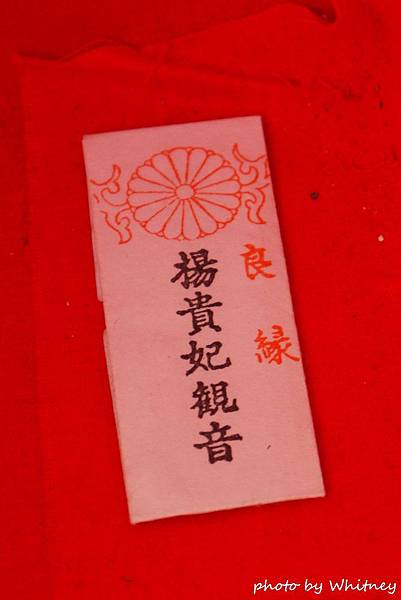 良縁
楊貴妃観音
photo by Whitney